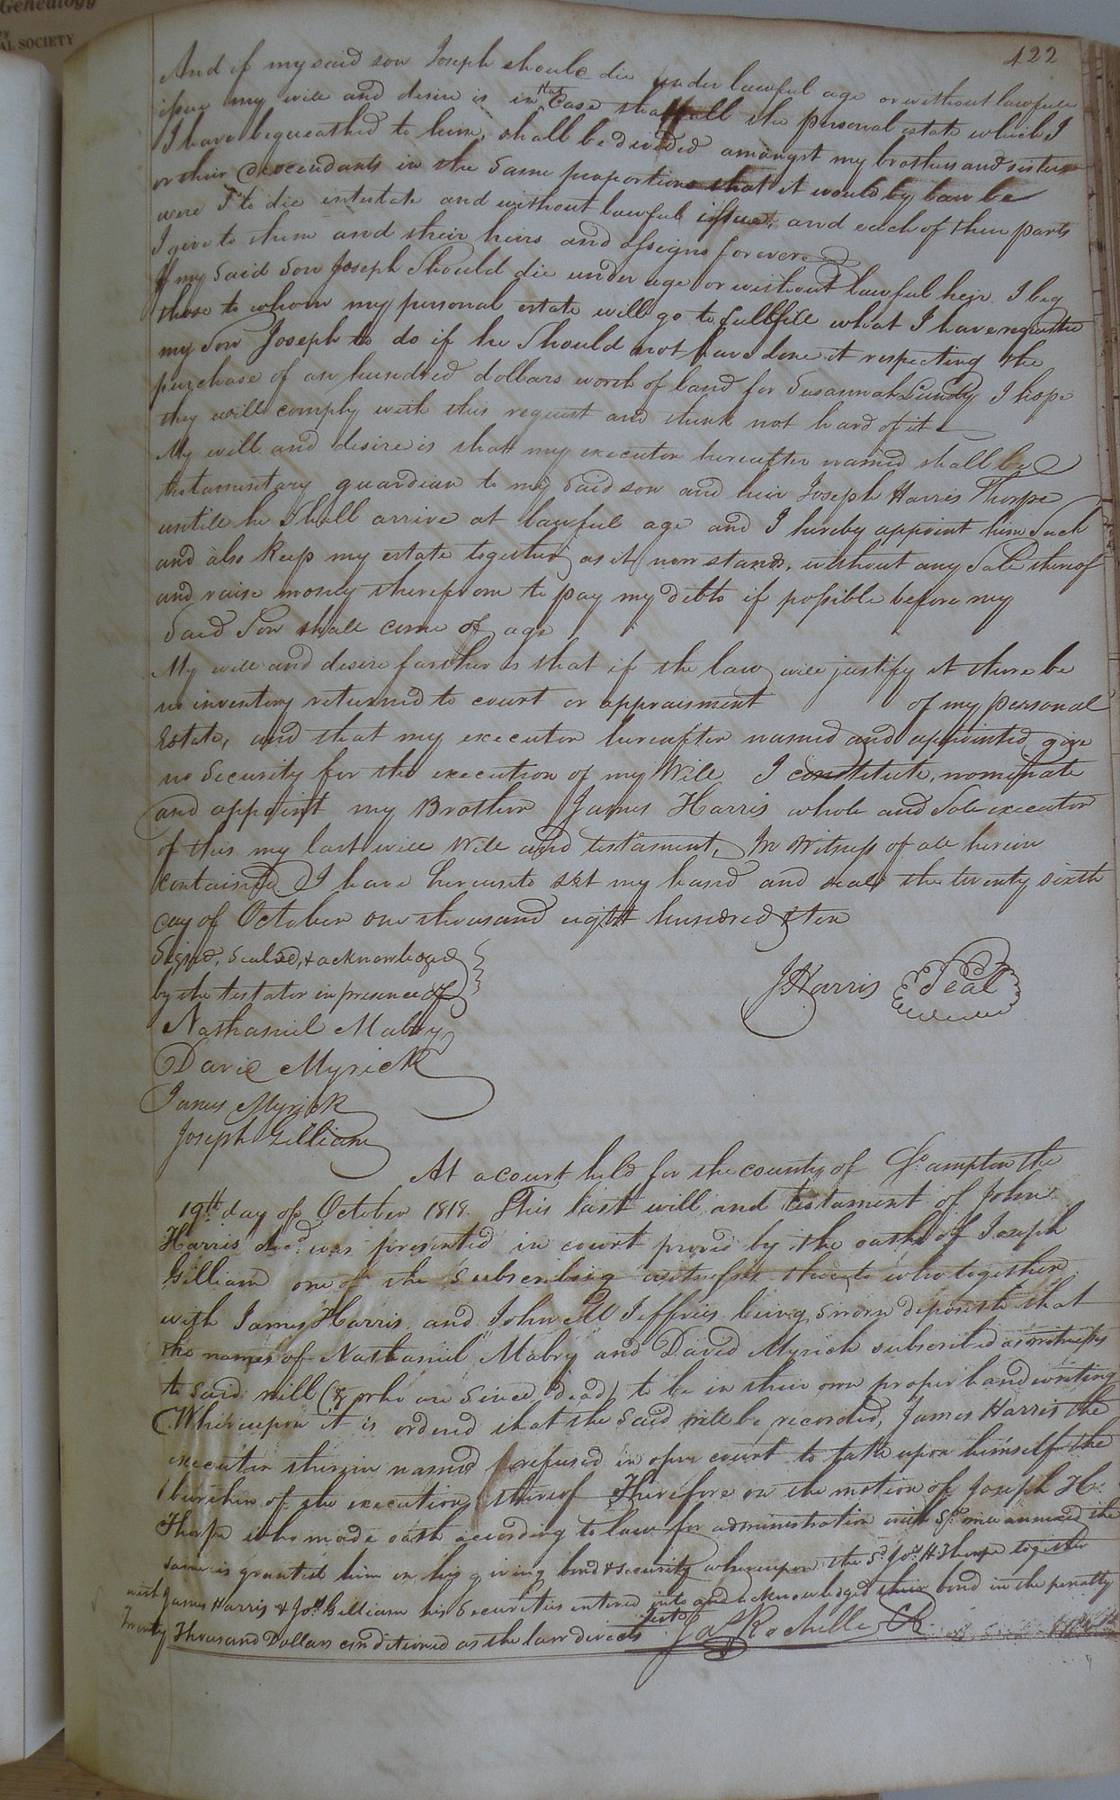 Genealogy
AL SOCIETY
422
And if my said son Joseph should die under lawful age or without lawfull
issue my will and desire is in that case that all the personal estate which I
I have bequeathed to him, shall be divided amongst my brothers and sisters
or their decendants in the same proportions that it would by law be
were I to die intestate and without lawful issue, and each of their parts
I give to them and their heirs and assigns forever
If my said Son Joseph Should die under age or without lawful heir. I beg
those to whom my personal estate will go to fullfill what I have requested
my Son Joseph to do if he Should not have done it respecting the
purchase of an hundred dollars worth of land for Susannah Lundy I hope
they will comply with this request and think not hard of it
My will and desire is that my executor hereafter named shall be
testamentary guardian to my said son and heir Joseph Harris Thorpe
untill he Shall arrive at lawful age and I hereby appoint him Such
and also keep my estate together as it now stands, without any Sale thereof
and raise money therefrom to pay my debts if possible before my
Said Son shall come of age
My will and desire farther is that if the law will justify it there be
no inventory returned to court or appraisment of my personal
Estate, and that my executor hereafter named and appointed give
no Security for the execution of my Will I constitute, nominate
and appoint my Brother James Harris whole and Sole executor
of this my last will Will and testament, In Witness of all herein
contained I have hereunto set my hand and seal the twenty sixth
day of October one thousand eight hundred & ten
Signed, Sealed, & acknowledged
by the testator in presence of
J Harris Seal
Nathaniel Mabry
David Myrick
James Myrick
Joseph Gilliam
At a court held for the county of So. ampton the
19th. day of October 1818. This last will and testament of John
Harris decd. was presented in court proved by the oath of Joseph
Gilliam one of the Subscribing witnesses thereto who together
with James Harris and John W Jeffries being sworn deposeth that
the names of Nathaniel Mabry and David Myrick subscribed as witnesses
to said will (& who are Since dead) to be in their own proper handwriting
Whereupon it is ordered that the said will be recorded, James Harris the
executor therein named refused in open court to take upon himself the
burthen of the execution thereof Therefore on the motion of Joseph H.
Thorpe who made oath according to law for administration with sd. will annexed the
same is granted him on his giving bond & security whereupon the Sd. Jos. H Thorpe together
with James Harris & Jos. Gilliam his Securities entered into and acknowledged their bond in the penalty
Twenty Thousand Dollars conditioned as the law directs Teste Jas Rochelle